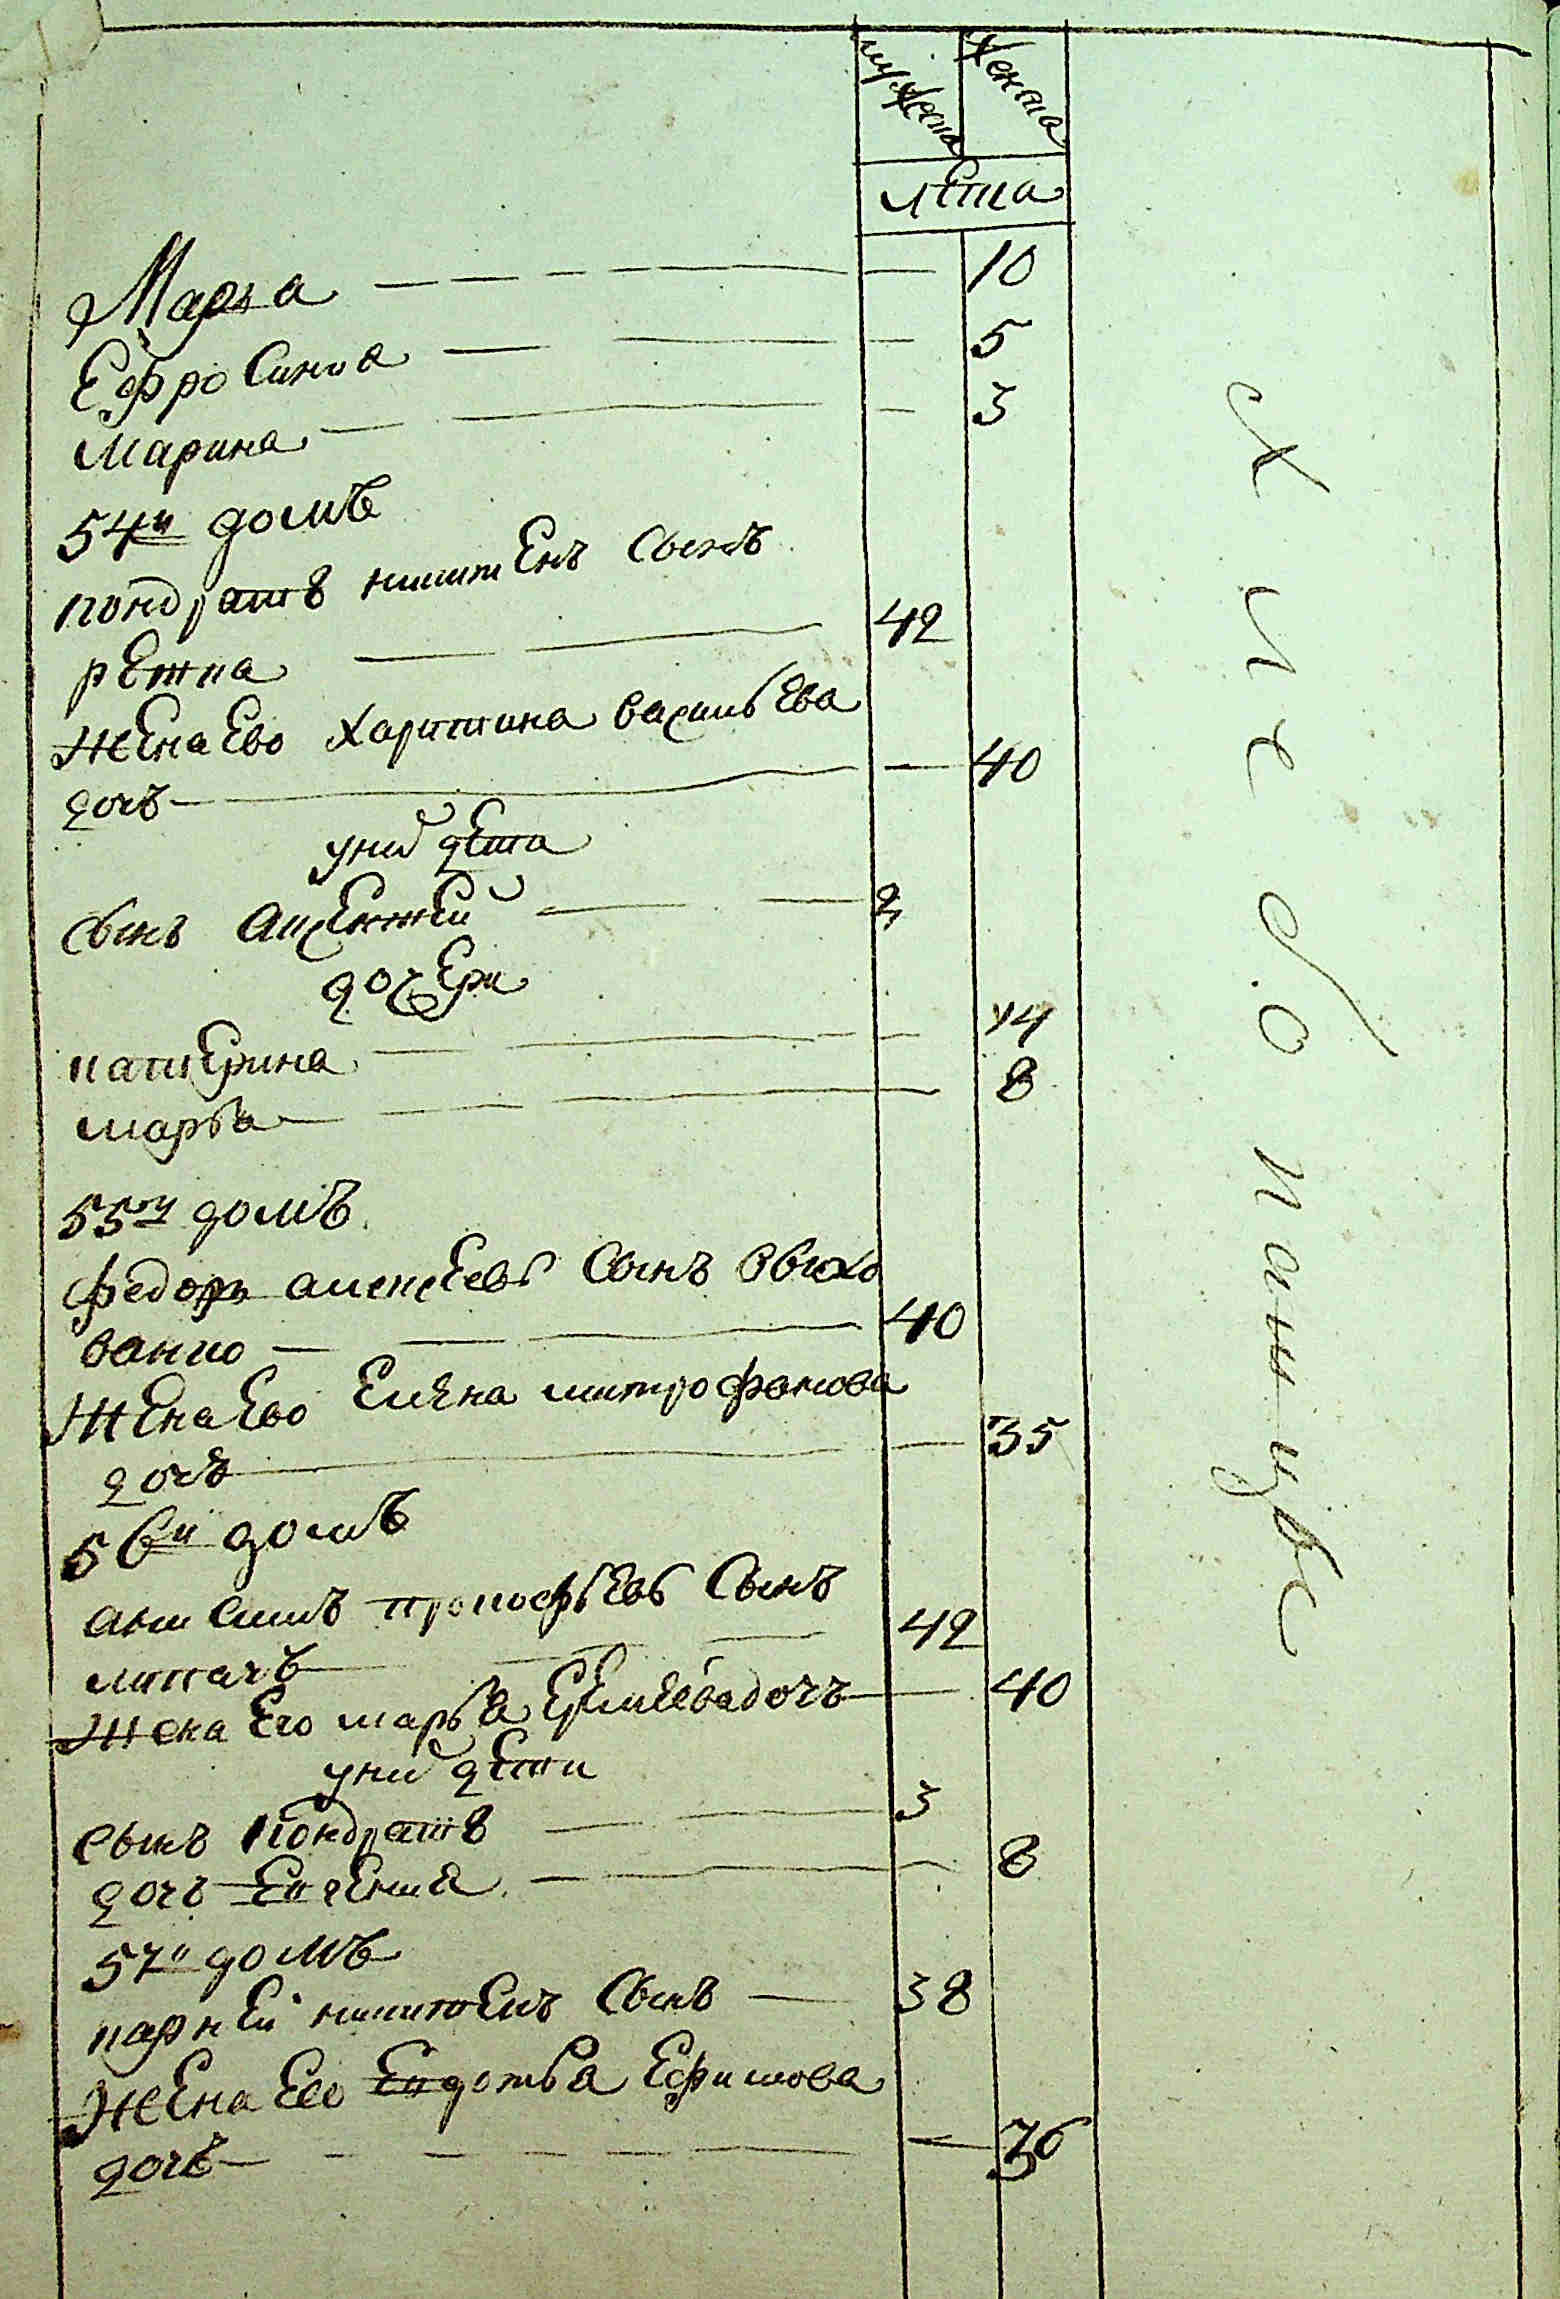 мужеска женска
лета
Марья 10
Ефросиниа 5
Марина 3
54й домъ
кондратъ никитенъ сынъ
ретка 42
жена ево харитина васильева
дочь 40
у них дети
сынъ авксентей 2
дочери
катерина 14
марья 8
55й домъ
федоръ алексеевъ сынъ
ванко 40
жена ево елена митрофанова
дочь 35
56й домъ
анисимъ прокофьевъ сынъ
ликачъ 42
жена его марья еремеева дочь 40
у них дети
сынъ кондратъ 3
дочь евгениа 8
57й домъ
карней никитенъ сынъ 38
жена ево евдотья ефимова
дочь 36